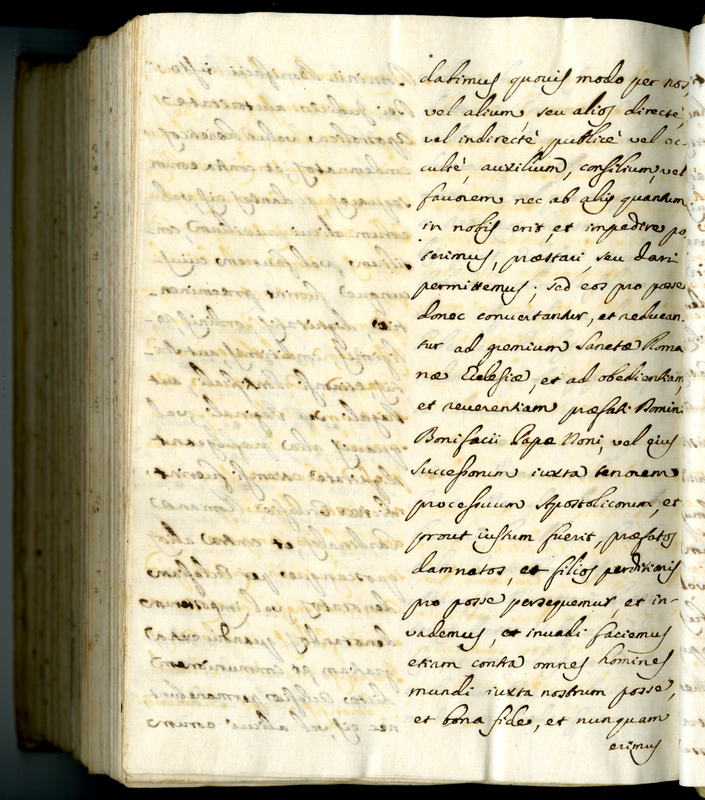 datimus quovis modo per nos,
vel alium, seu alios directè,
vel indirectè, publicè vel oc-
cultè, auxilium, consilium, vel
favorem nec ab aliis quantum
in nobis erit, et impedire po-
terimus, præstari, seu dari
permittemus; sed eos pro posse
donec convertantur, et reducan-
tur ad gremium Sanctæ Roma
næ Ecclesiæ, et ad obedientiam,
et reverentiam præfati Domini
Bonifacii Papæ Noni, vel eius
successorum iuxta tenorem
processuum Apostolicorum, et
prout iustum fuerit, præfatos
damnatos, et filios perditionis
pro posse persequemur et in-
vademus, et invadi faciemus
etiam contra omnes homines
mundi iuxta nostrum posse,
et bona fide, et nunquam
erimus